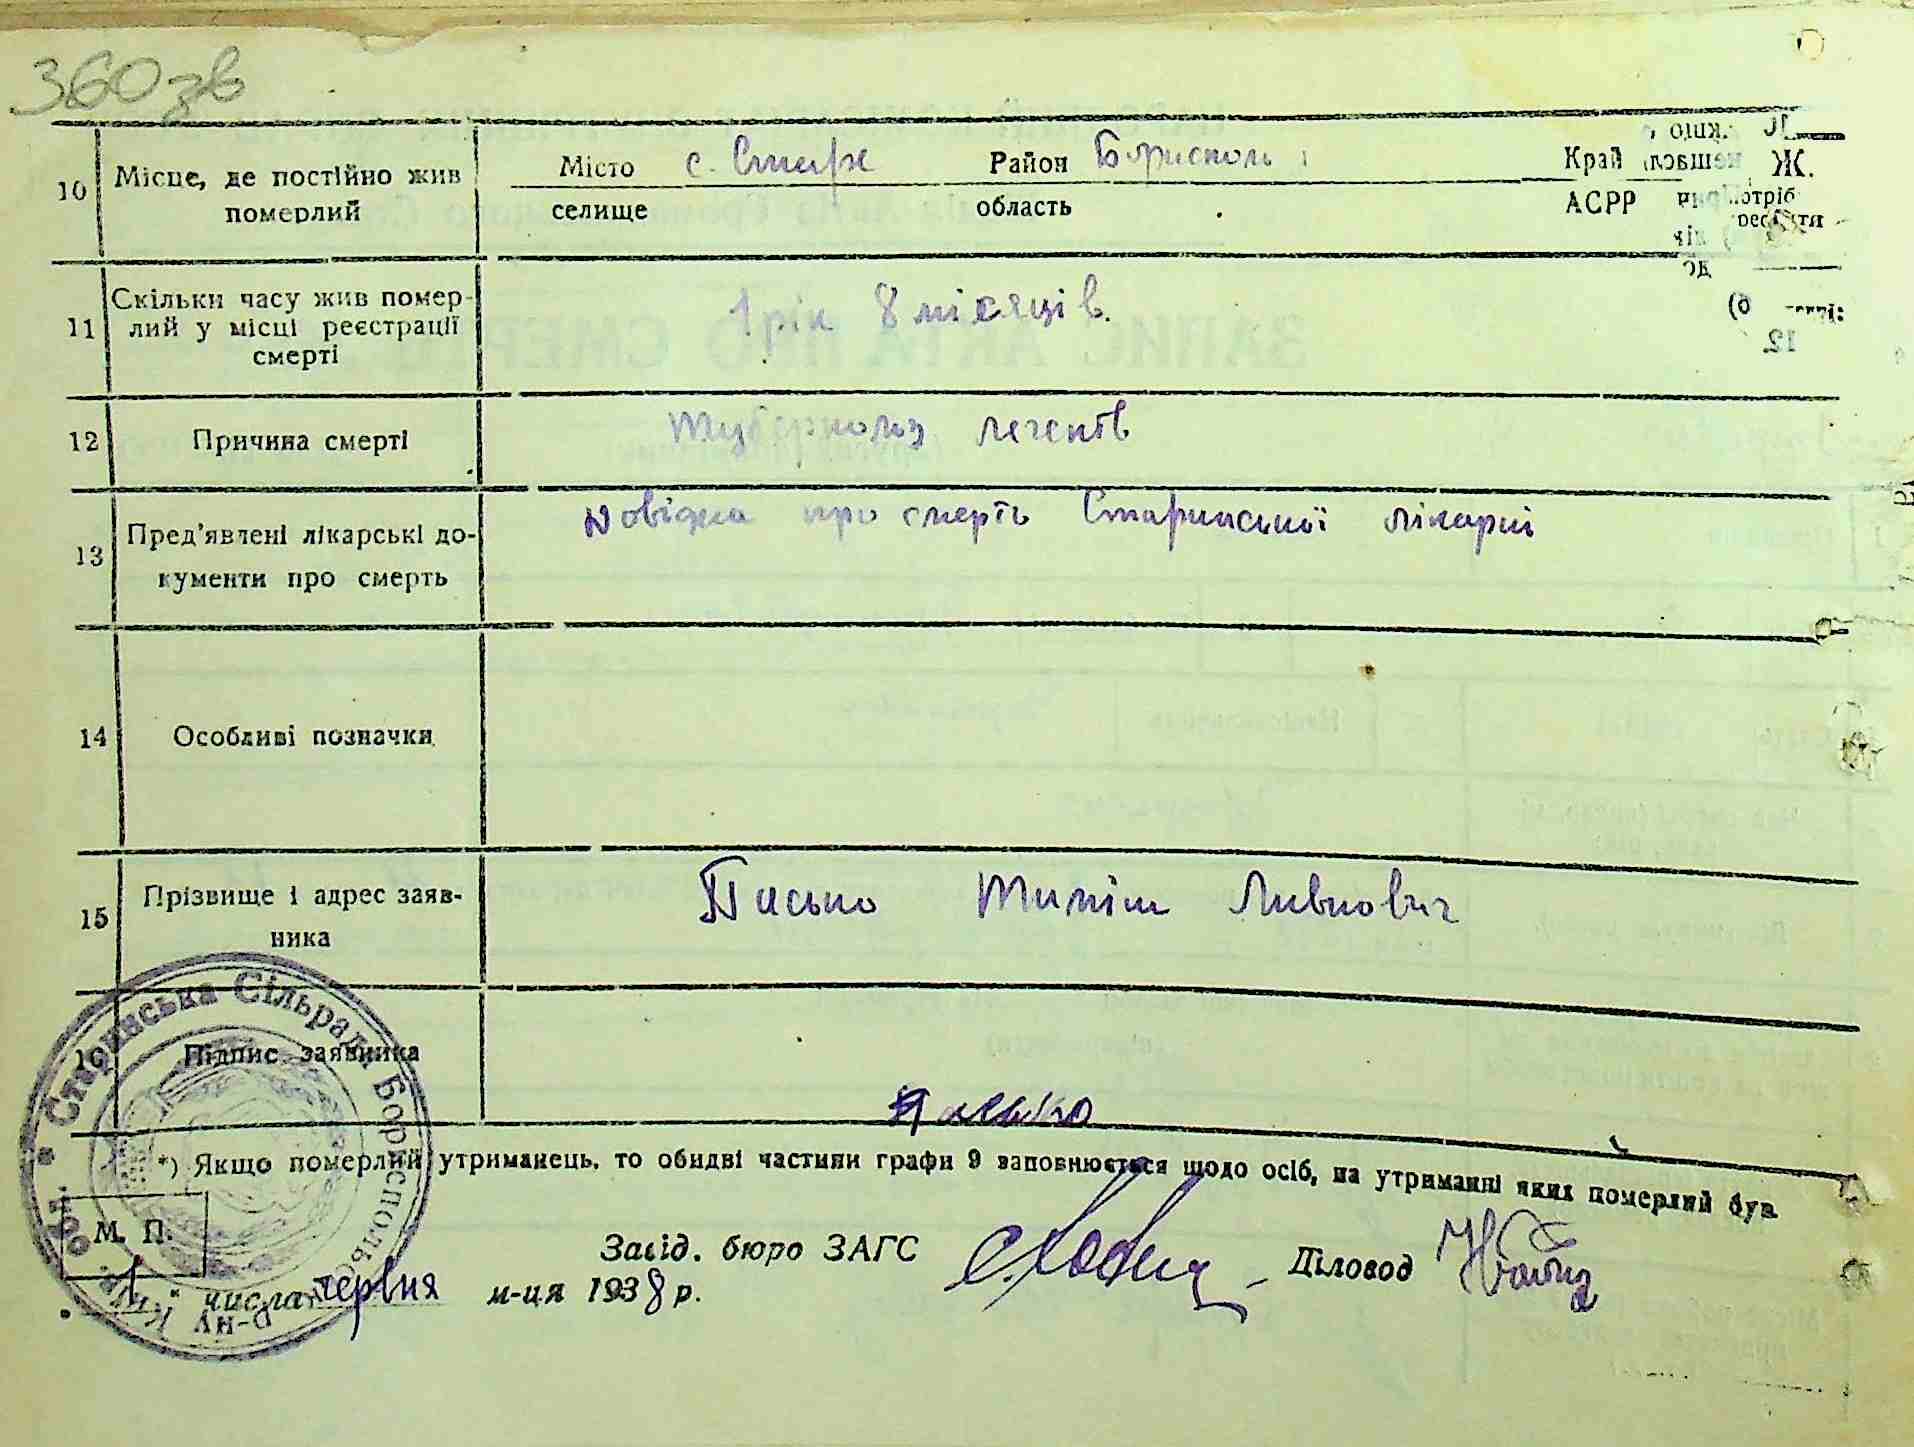 360 зв
10 Місце, де постійно жив померлий Місто с. Старе Район Бориспол Край
селище область АСРР
11 Скільки часу жив помер-
лий у місці реєстрації
смерті 1 рік 8 місяців.
12 Причина смерті Туберкольз легенів
13 Пред'явлені лікарські до-
кументи про смерть довідка про смерть Старинської лікарні
14 Особливі позначки
15 Прізвище і адрес заяв-
ника Пасько Тиміш Ливкович
16 Підпис заявника Пасько
*) Якщо померлий утриманець, то обидві частини графи 9 заповнюється щодо осіб, на утриманні яких померлий був.
Старинська Сільрада Бориспольс Р-ну Київ. обл.
М. П.
Завід. бюро ЗАГС Діловод
"1" числа червня м-ця 1938 р.